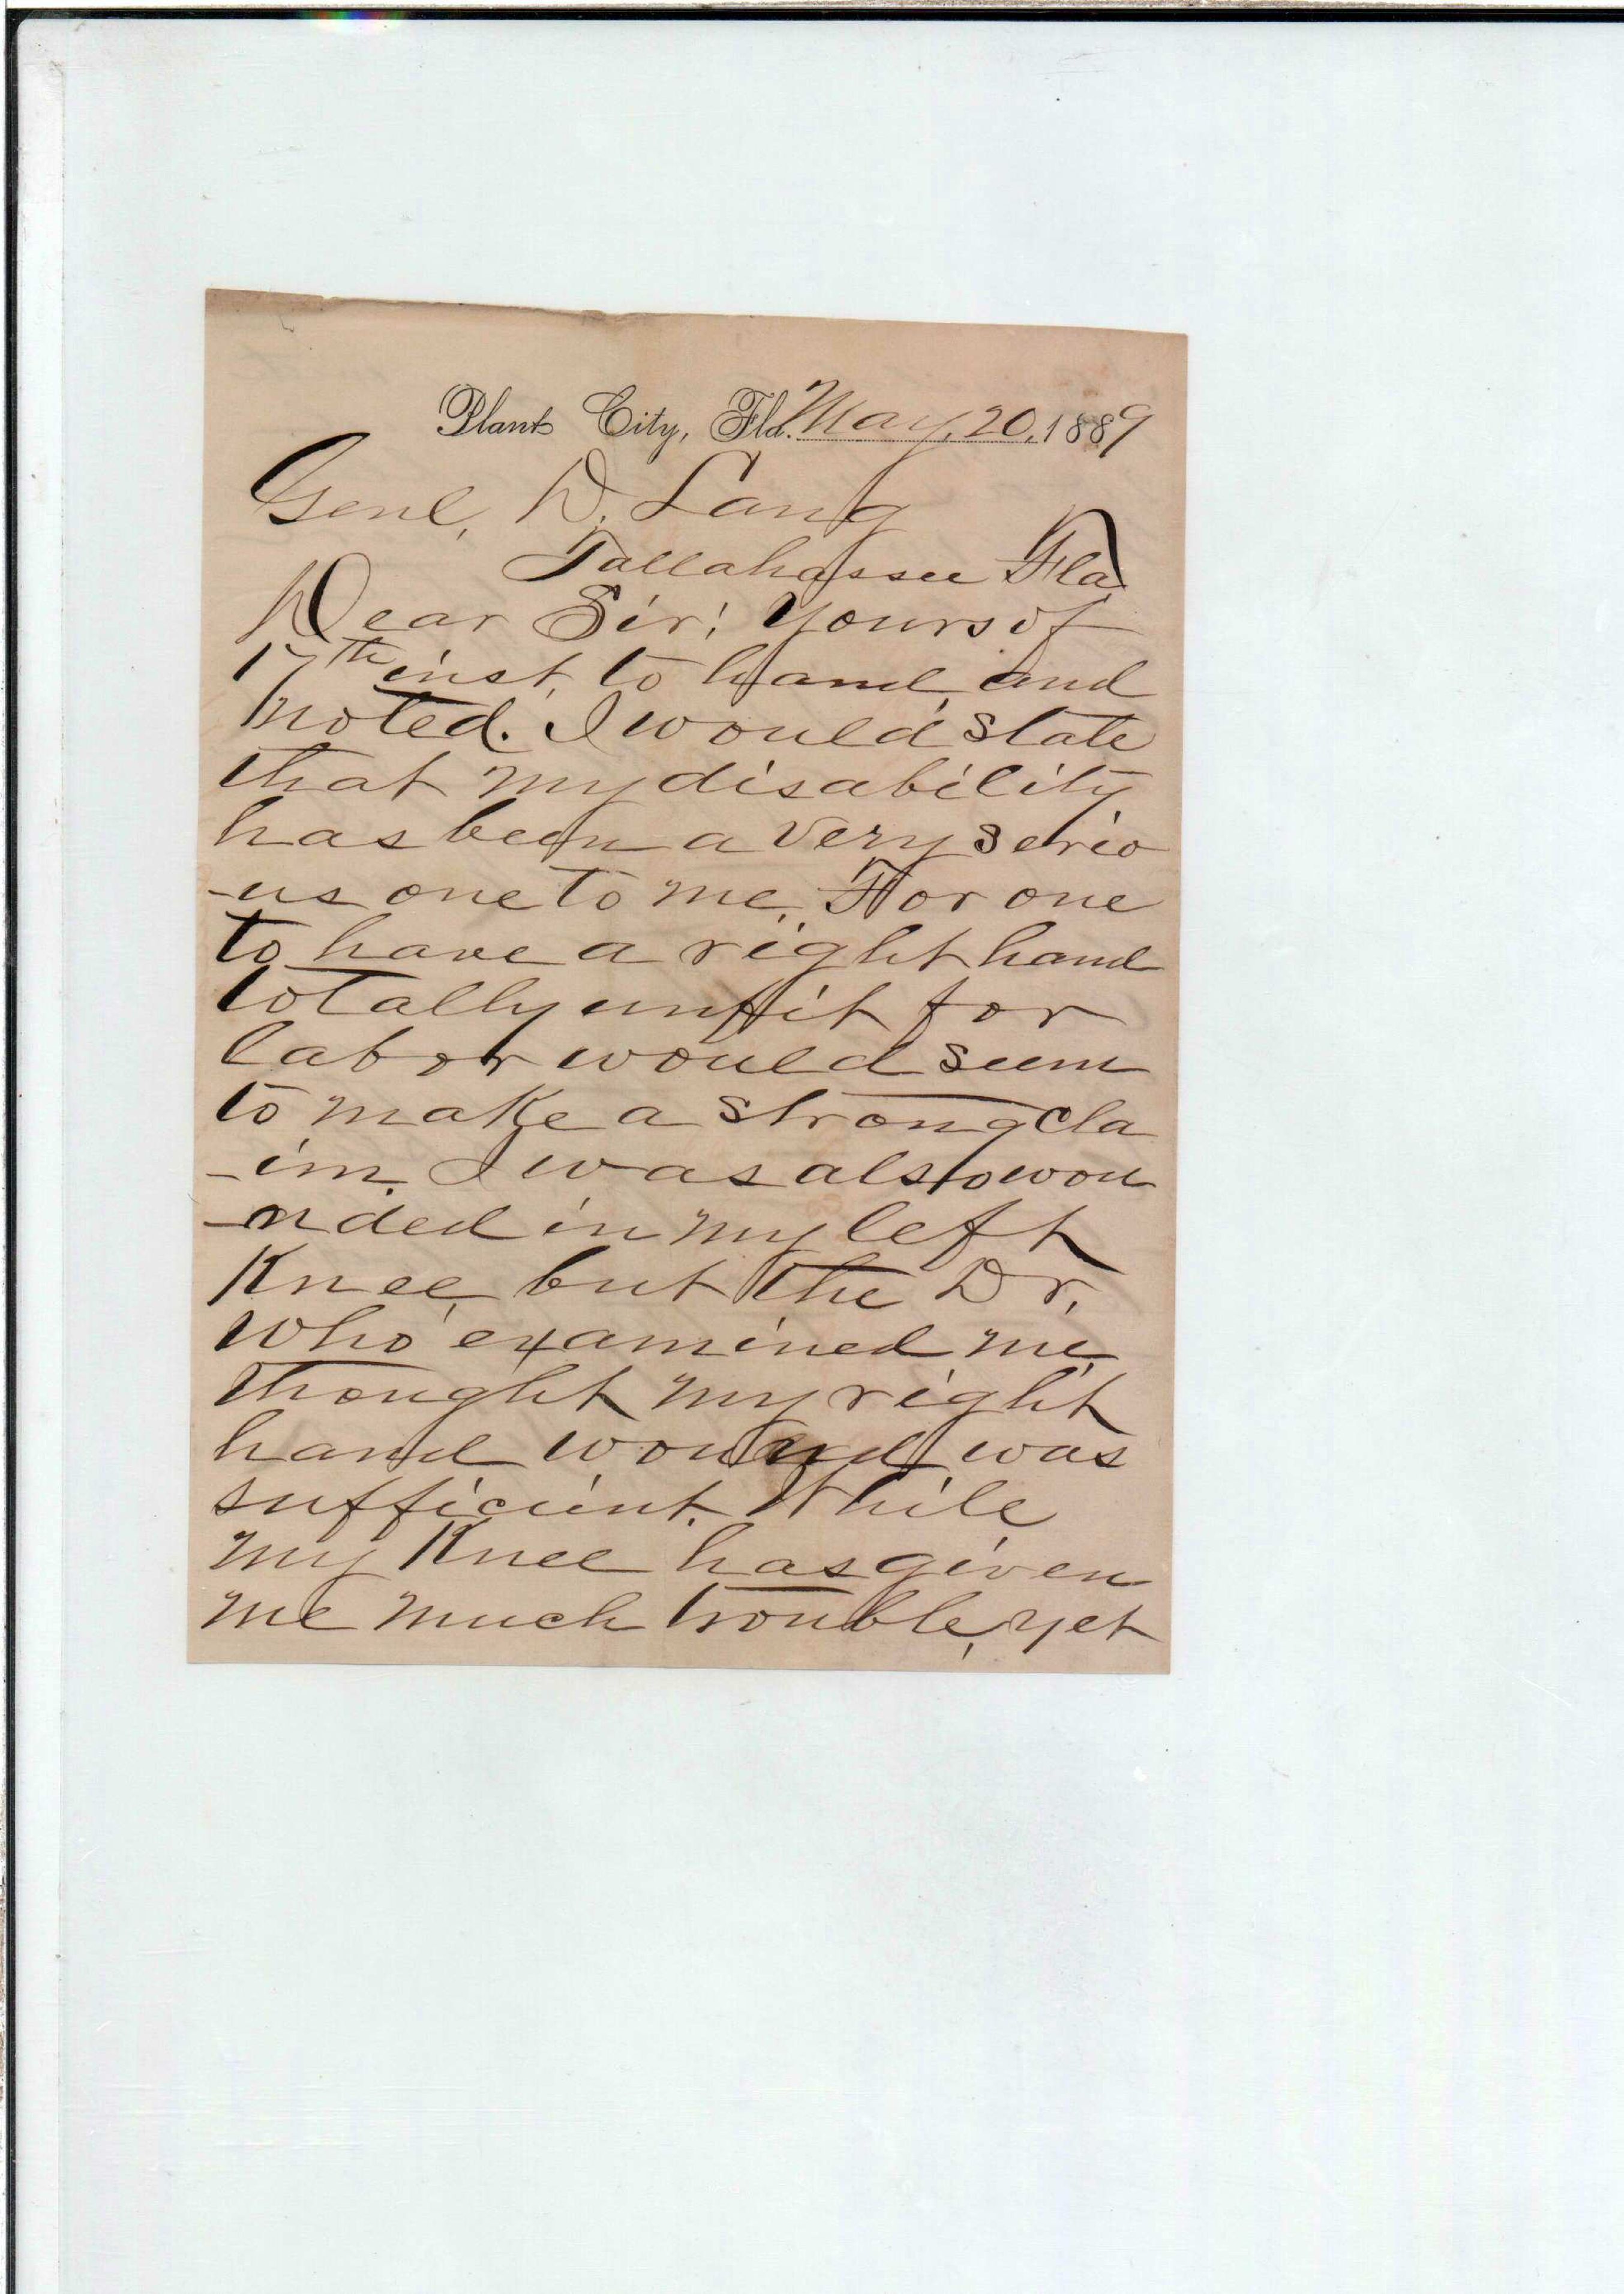 Plant City, Fla. May, 20, 1889
Genl, D. Lang
Tallahassee Fla
Dear Sir; Yours of
17th inst, to hand, and
noted. I would state
that my disability
has been a very serio
-us one to me, For one
to have a right hand
totally unfit for
labor would seem
to make a strong cla
-im. I was also wou
-nded in my left
Knee, but the Dr,
who examined me,
thought my right
hand wound was
sufficient. While
my Knee has given
me much trouble, yet